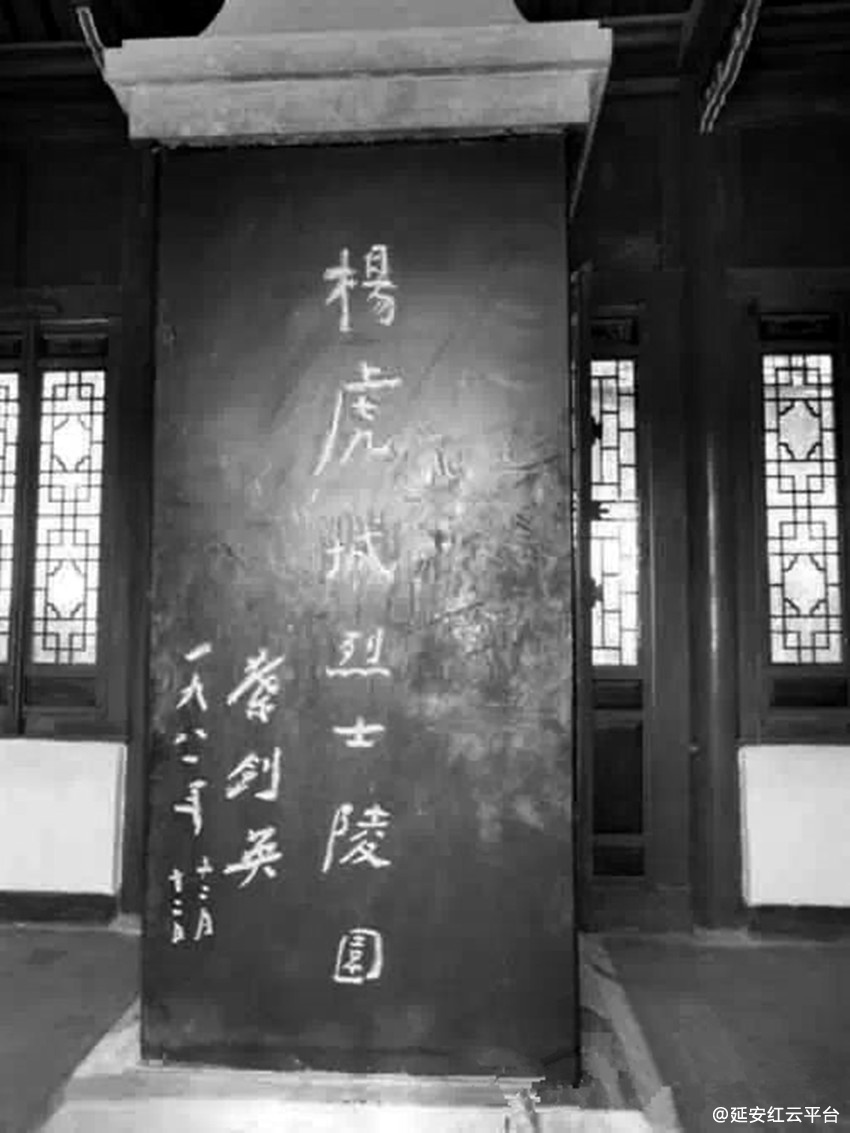 楊虎城烈士陵園
葉剑英
一九八一年十二月
十二日
@延安红云平台